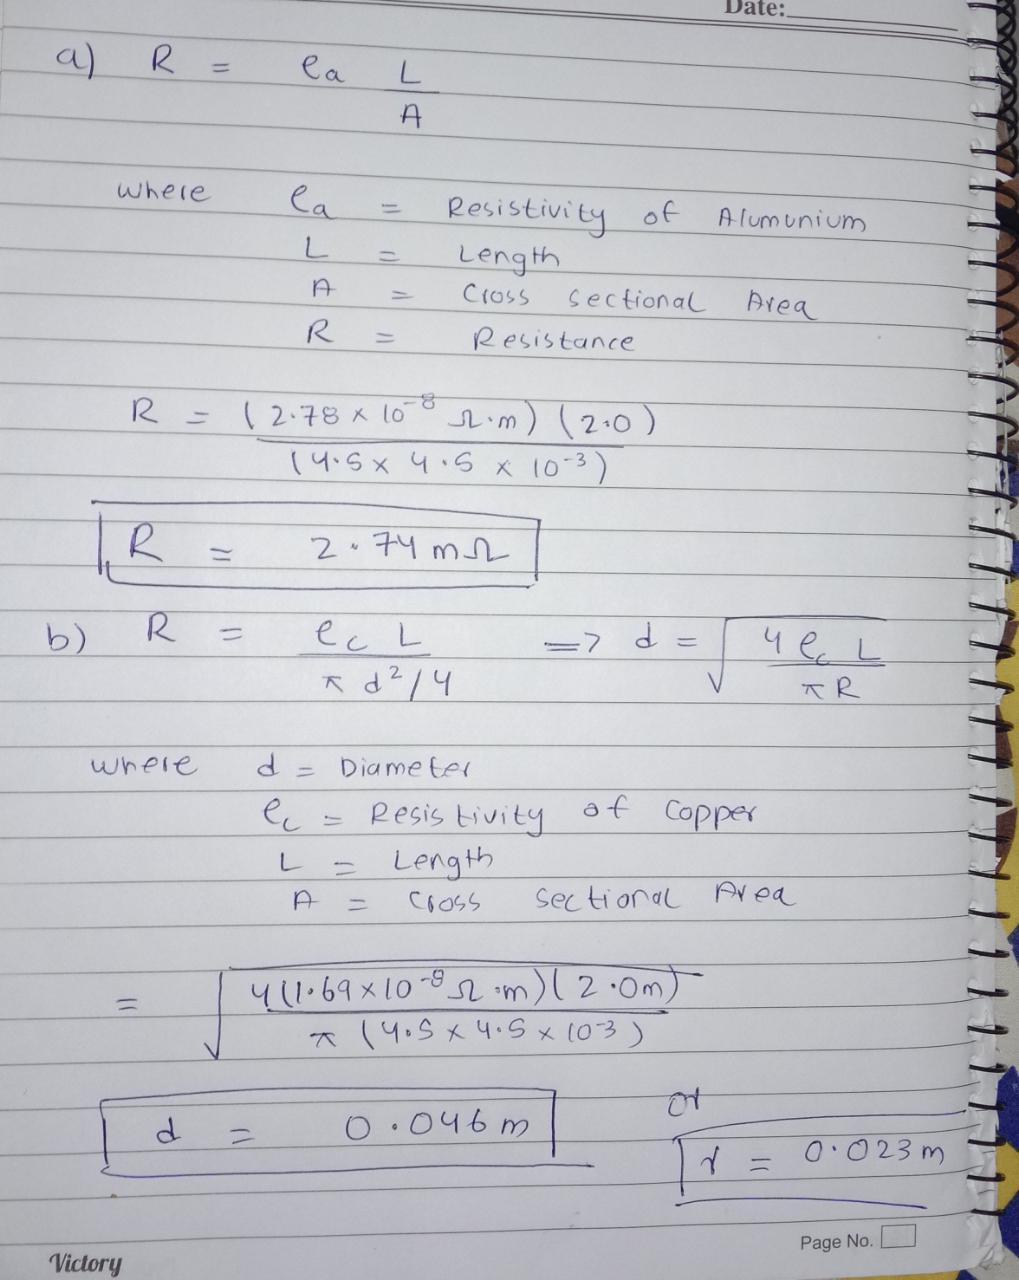 Date:
a) R = ρa L
A
where ρa = Resistivity of Alumunium
L = Length
A = Cross Sectional Area
R = Resistance
R = (2.78 × 10-8 Ω.m) (2.0)
(4.5 × 4.5 × 10-3)
R = 2.74 mΩ
b) R = ρc L => d = √ 4 ρc L
π d²/4 π R
where d = Diameter
ρc = Resistivity of Copper
L = Length
A = Cross Sectional Area
= √ 4(1.69×10-8 Ω.m)(2.0m)
π (4.5 × 4.5 × 10-3)
or
d = 0.046 m
r = 0.023 m
Page No.
Victory